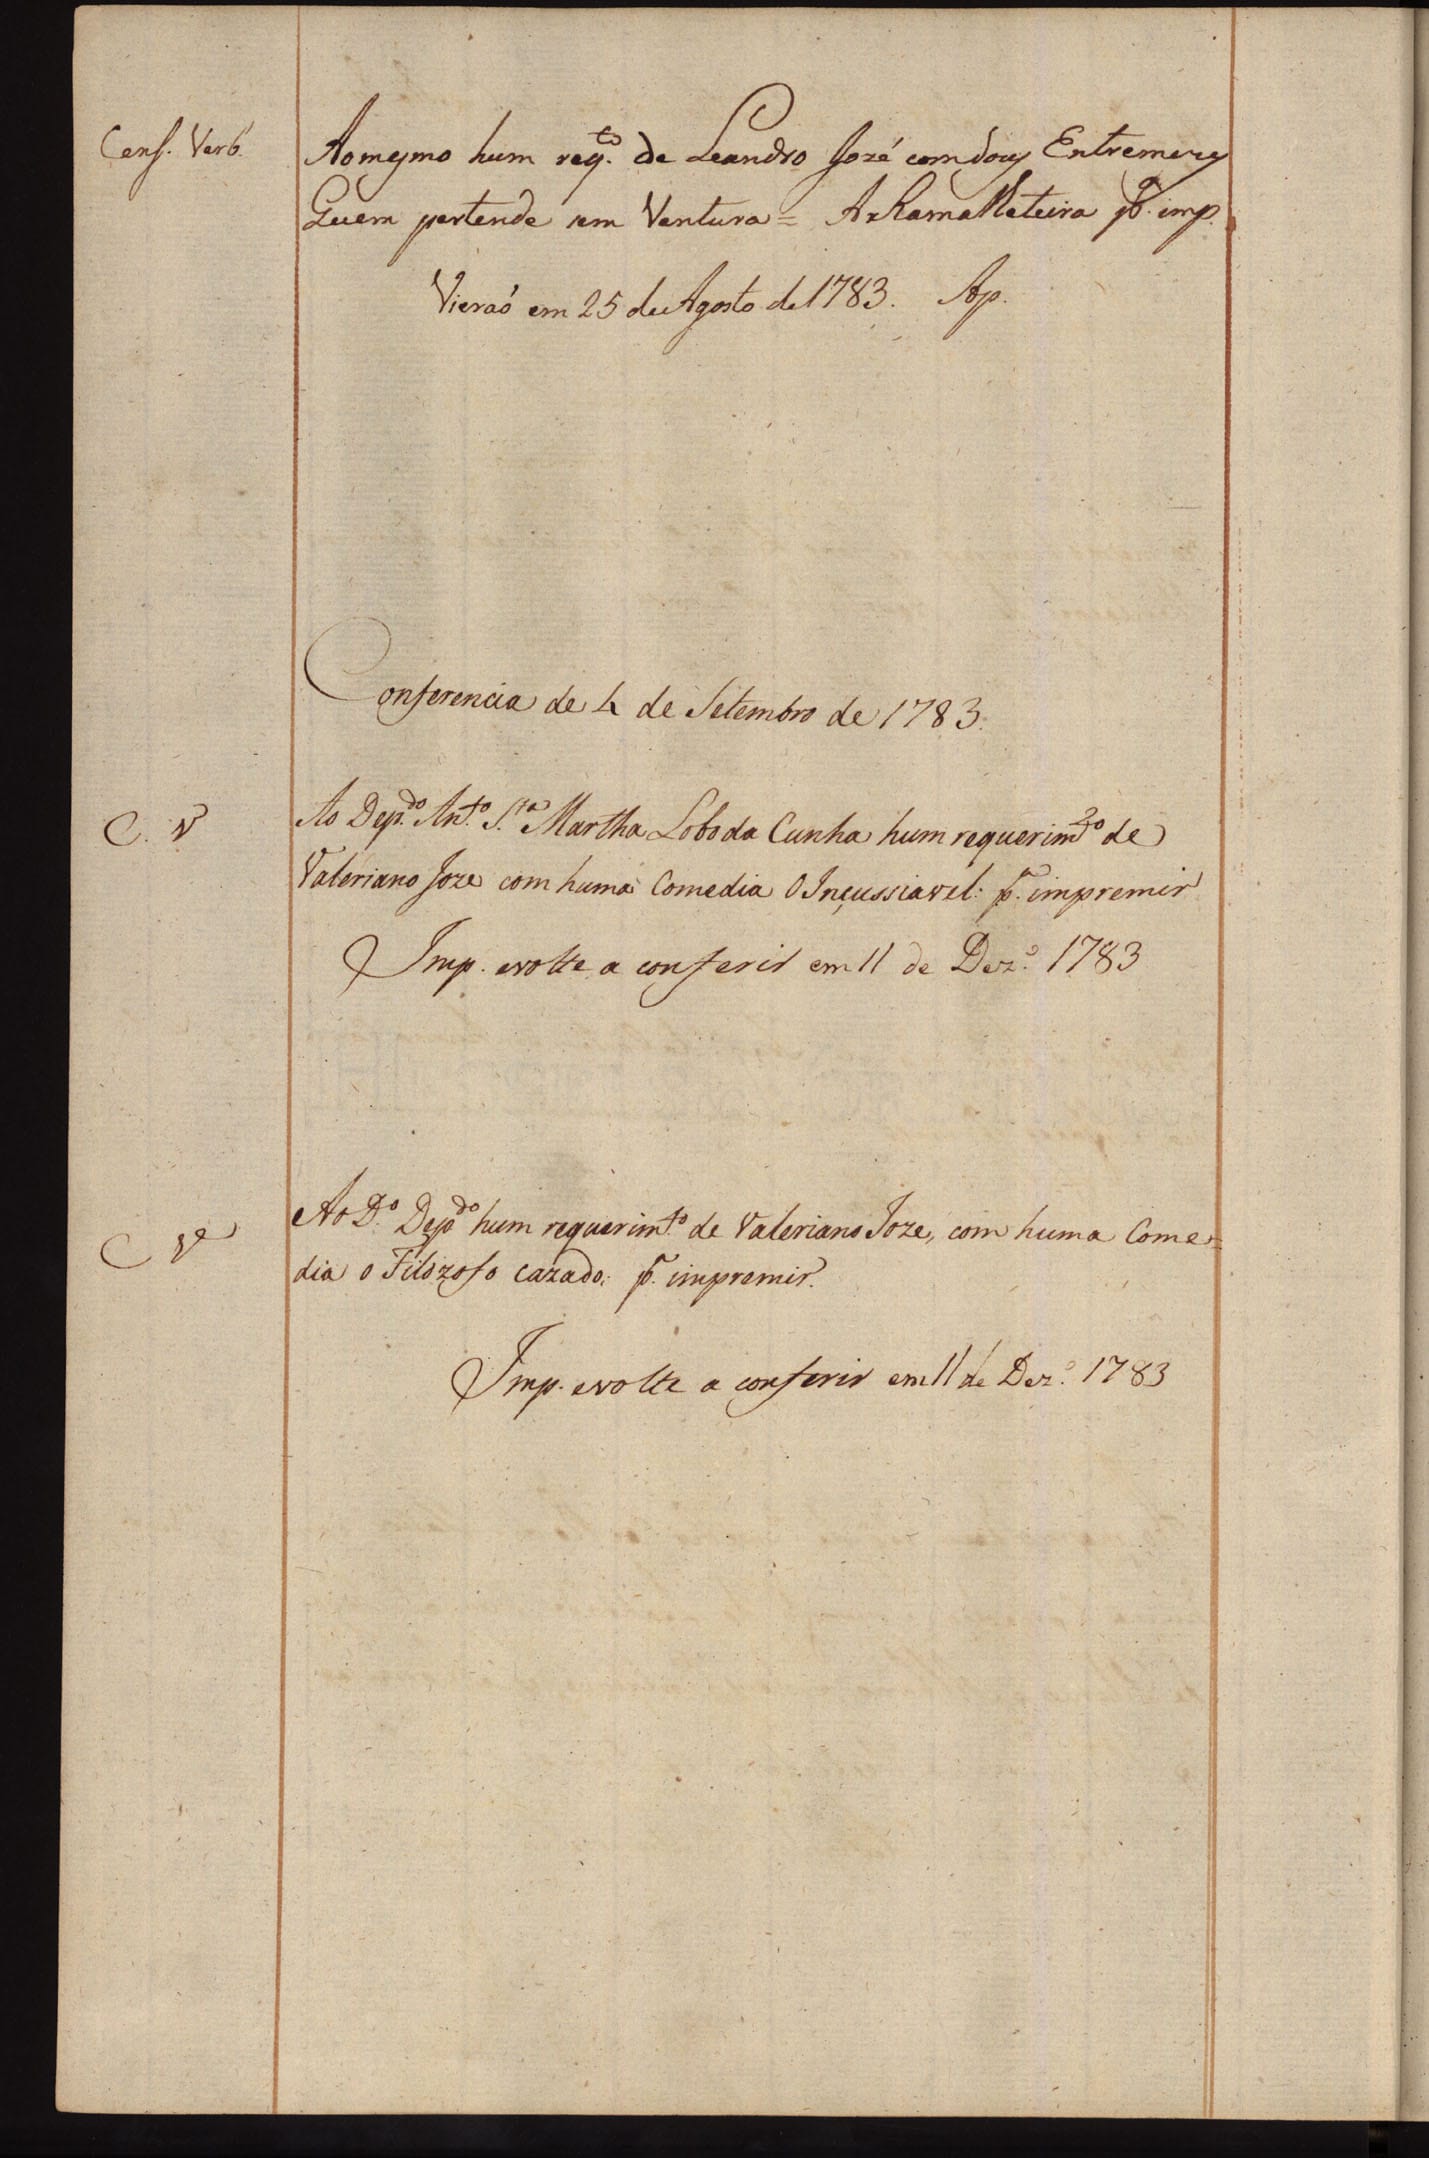 Cens. Verb.
Ao mesmo hum req.to de Leandro José com dous Entremezes
Quem pertende sem Ventura = A Ramalheteira p.a imp.
Vieraõ em 25 de Agosto de 1783. Ap.
Conferencia de 4 de Setembro de 1783.
C. V
Ao Dep.do Ant.o S.ta Martha Lobo da Cunha hum requerim.to de
Valeriano Joze com huma Comedia O Inçussiavel: p.a impremir
Imp. e volte a conferir em 11 de Dez.o 1783
C Ve
Ao D.o Dep.do hum requerim.to de Valeriano Joze, com huma Come=
dia o Filozofo cazado: p.a impremir.
Imp. e volte a conferir em 11 de Dez.o 1783